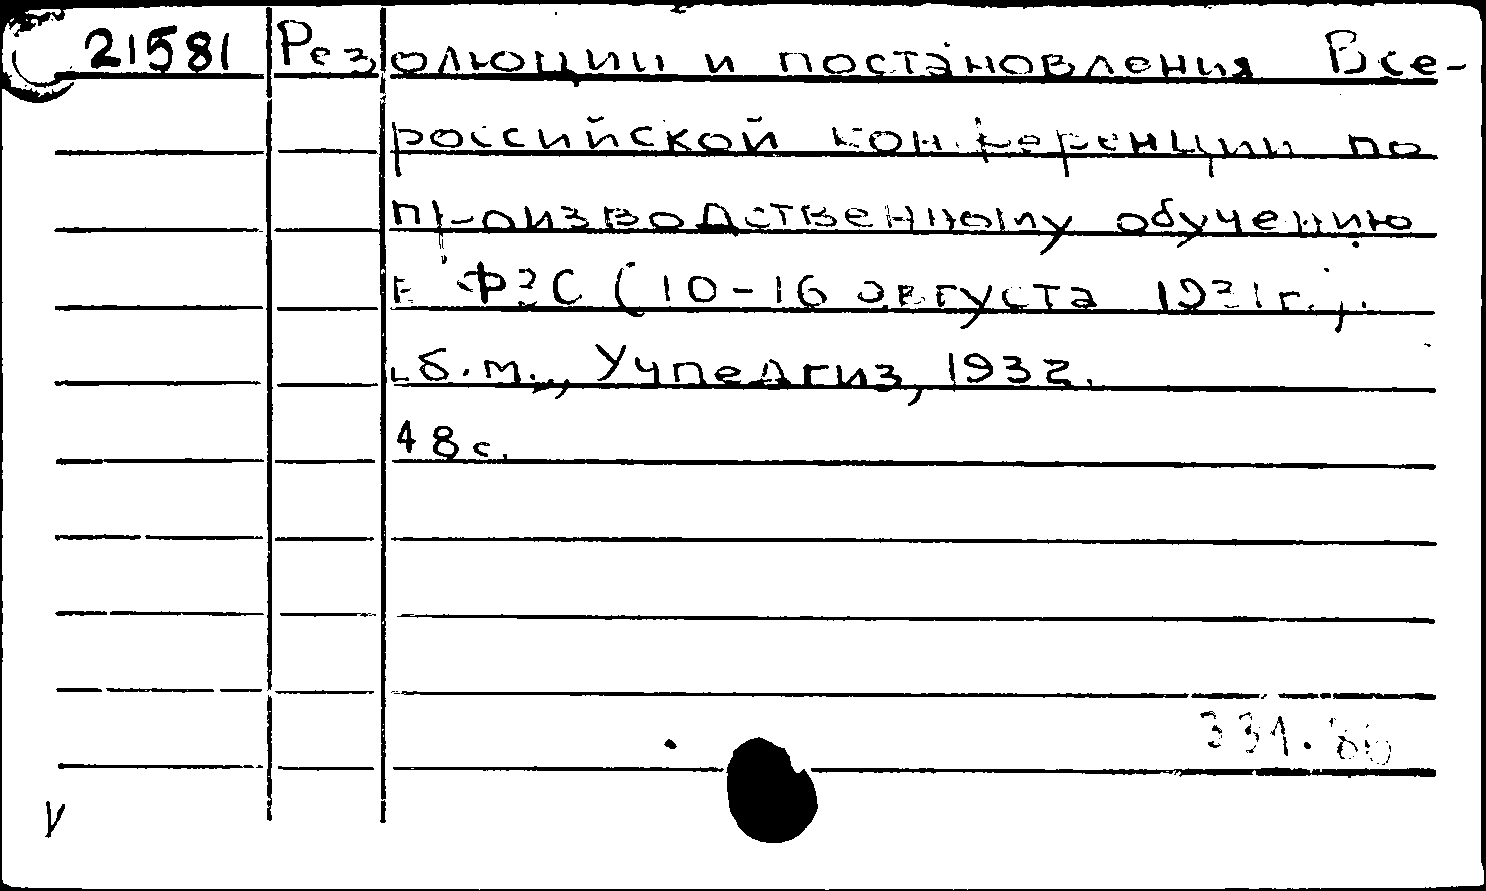 21581 Резолюции и постановления Все-
российской конференции по
производственному обучению
в ФЗС (10-16 августа 1931г.).
б.м., Учпедгиз, 1932.
48с.
331.86
V